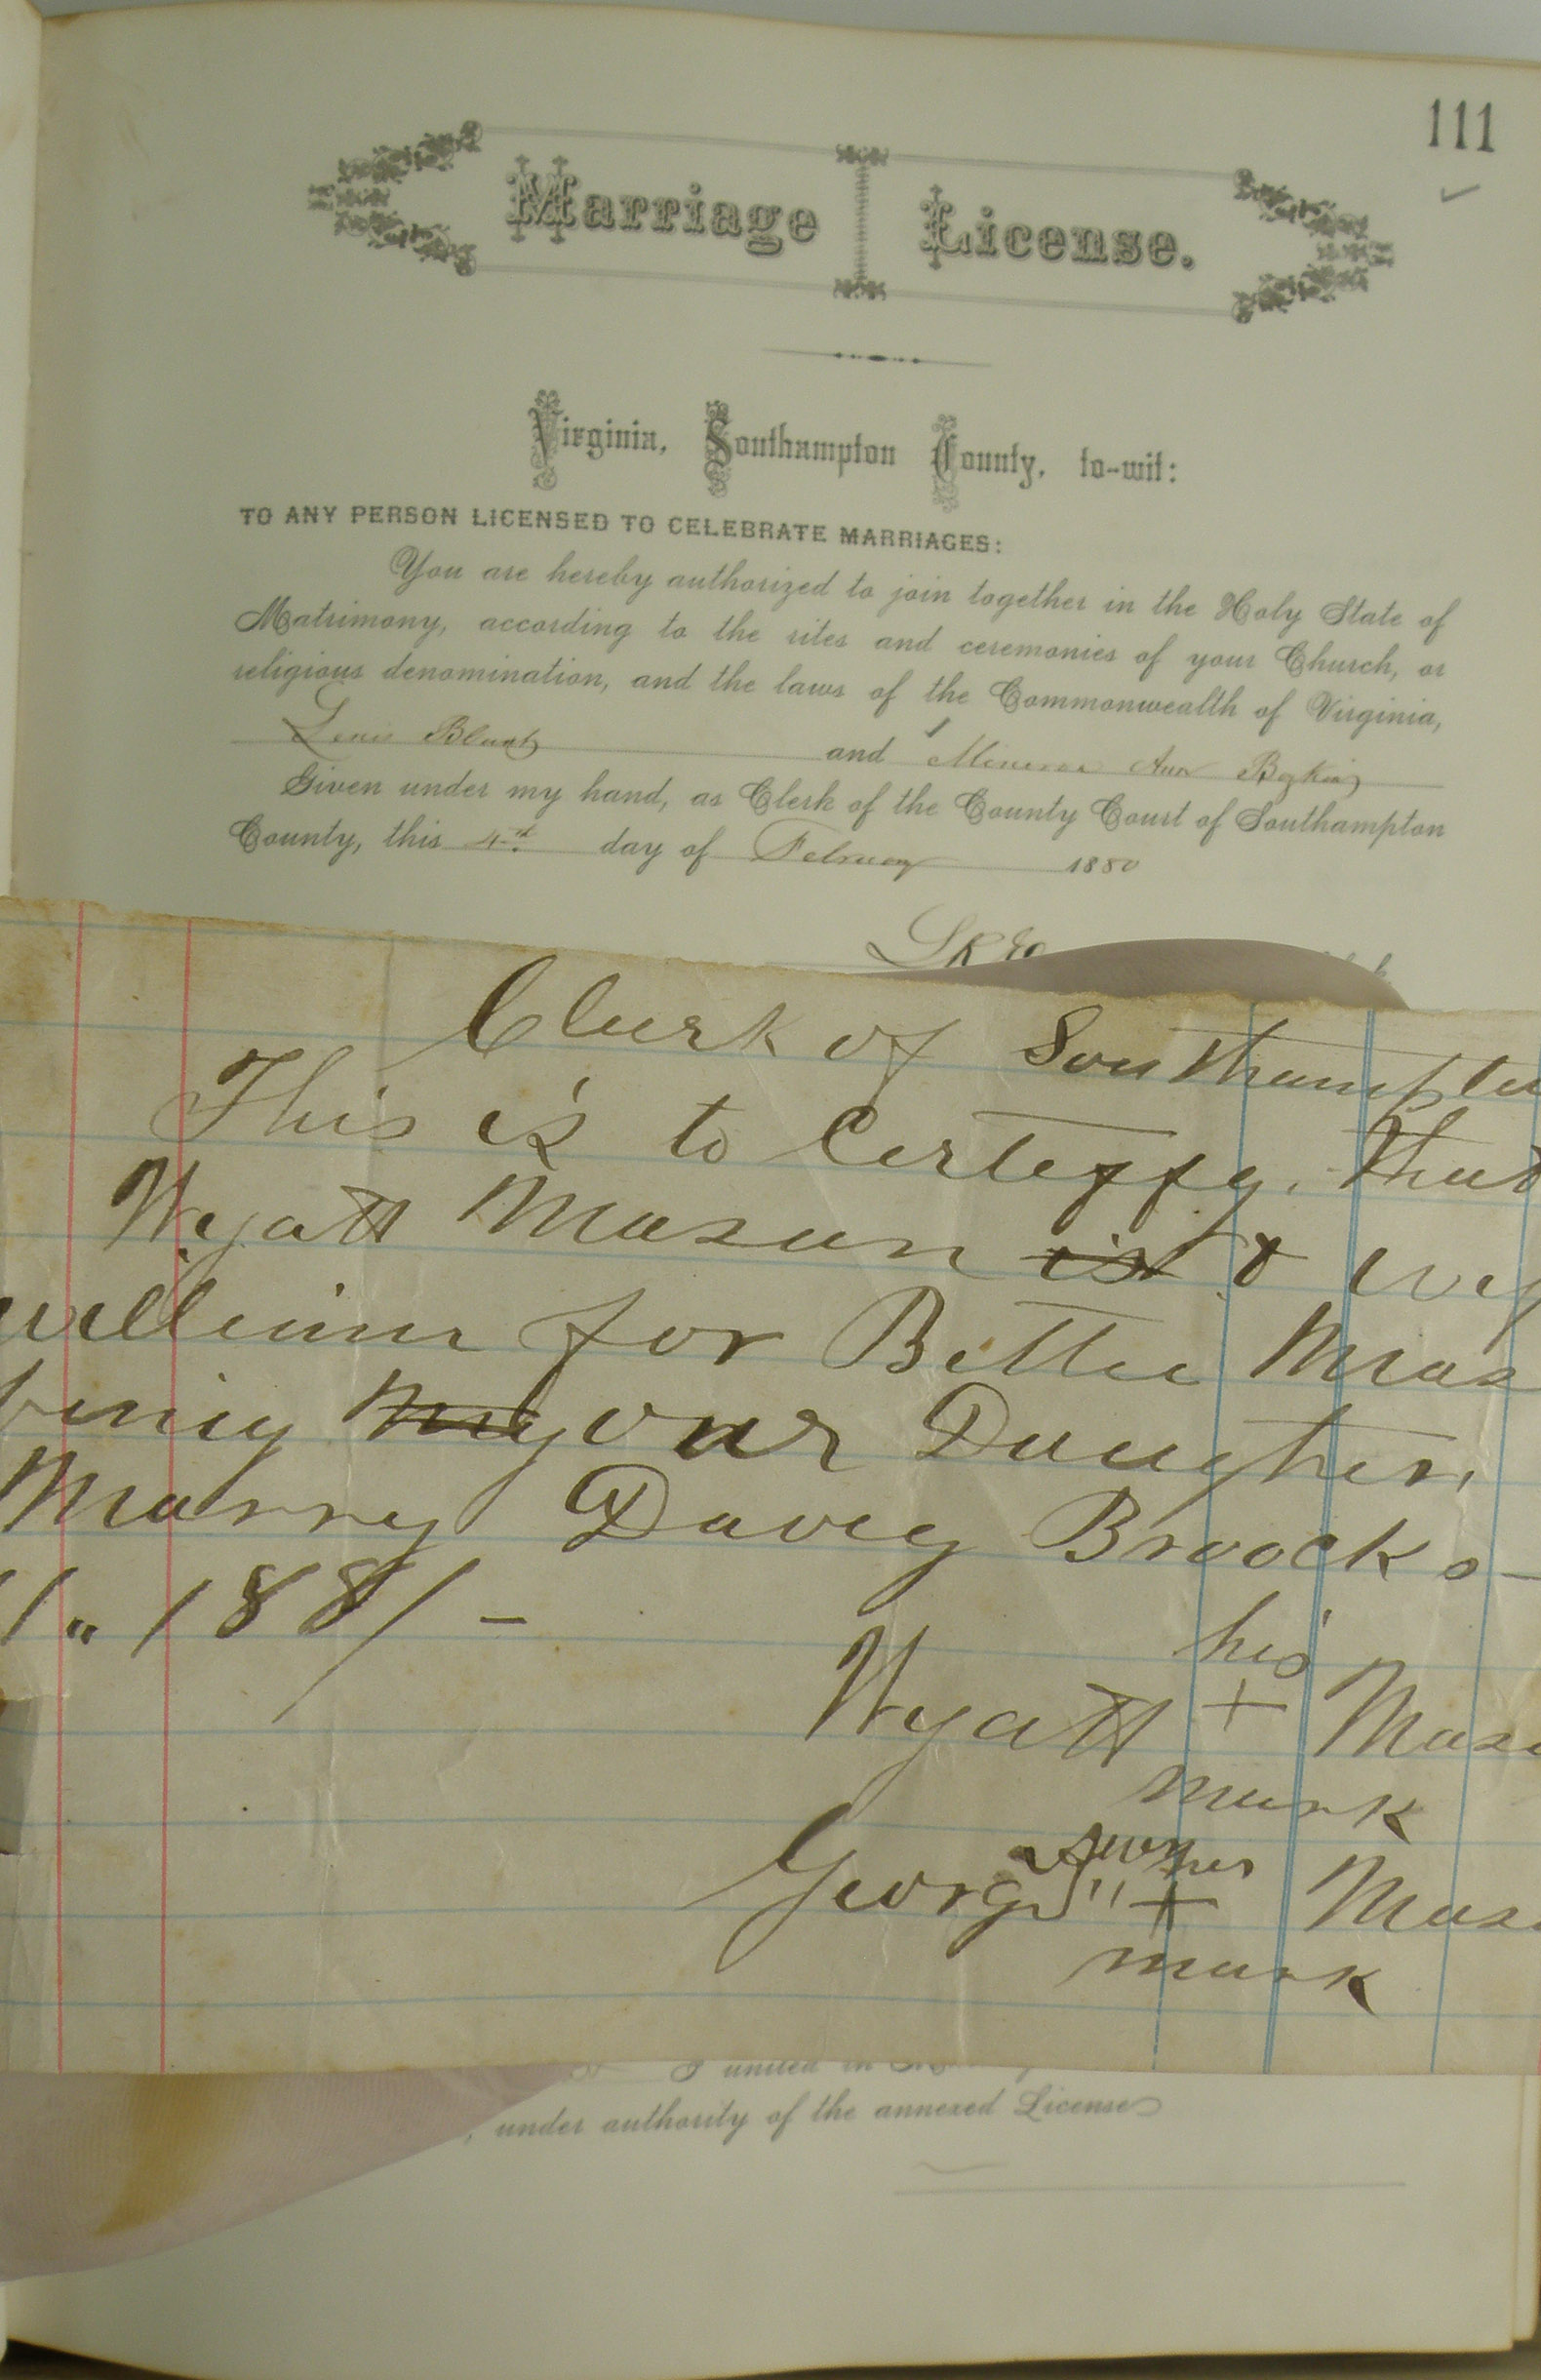 111
Marriage License.
Virginia, Southampton County, to-wit:
TO ANY PERSON LICENSED TO CELEBRATE MARRIAGES:
You are hereby authorized to join together in the Holy State of
Matrimony, according to the rites and ceremonies of your Church, or
religious denomination, and the laws of the Commonwealth of Virginia,
Louis Blunt and Minerva Ann Boykin
Given under my hand, as Clerk of the County Court of Southampton
County, this 4th day of February 1880
L R E
Clurk of Southampto
This is to Certeffy. that
Wyatt Mason is & wif
willinn for Bettie Mas
being my our Daughter,
Marry Davy Broocks-
1" 1881-
his
Wyatt + Maso
mark
her
Georg " + Maso
mark
I united in
, under authority of the annexed License